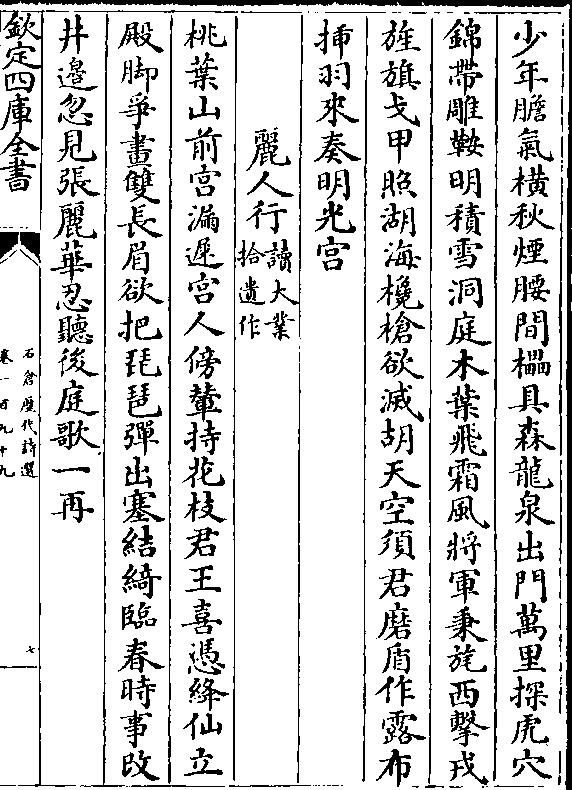 少年膽氣横秋煙腰間櫑具森龍泉出門萬里探虎穴
錦帶雕鞍明積雪洞庭木葉飛霜風將軍秉旄西擊戎
旌旗戈甲照湖海欃槍欲滅胡天空須君磨盾作露布
挿羽來奏明光宫
麗人行讀大業拾遺作
桃葉山前宫漏遲宫人傍輦持花枝君王喜憑絳仙立
殿脚爭畫雙長眉欲把琵琶彈出塞結綺臨春時事改
井邉忽見張麗華忍聽後庭歌一再
欽定四庫全書
石倉歷代詩選
卷一百九十九
七